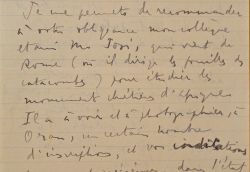 Je me permets de recommander
à votre obligeance mon collègue
et ami Mr Josi, qui vient de
Rome (où il dirige les fouilles des
catacombes) pour étudier les
monuments chrétiens d'Afrique
Il a à voir et à photographier, à
Oran, un certain nombre
d'inscriptions, et vos indications
dans l'état